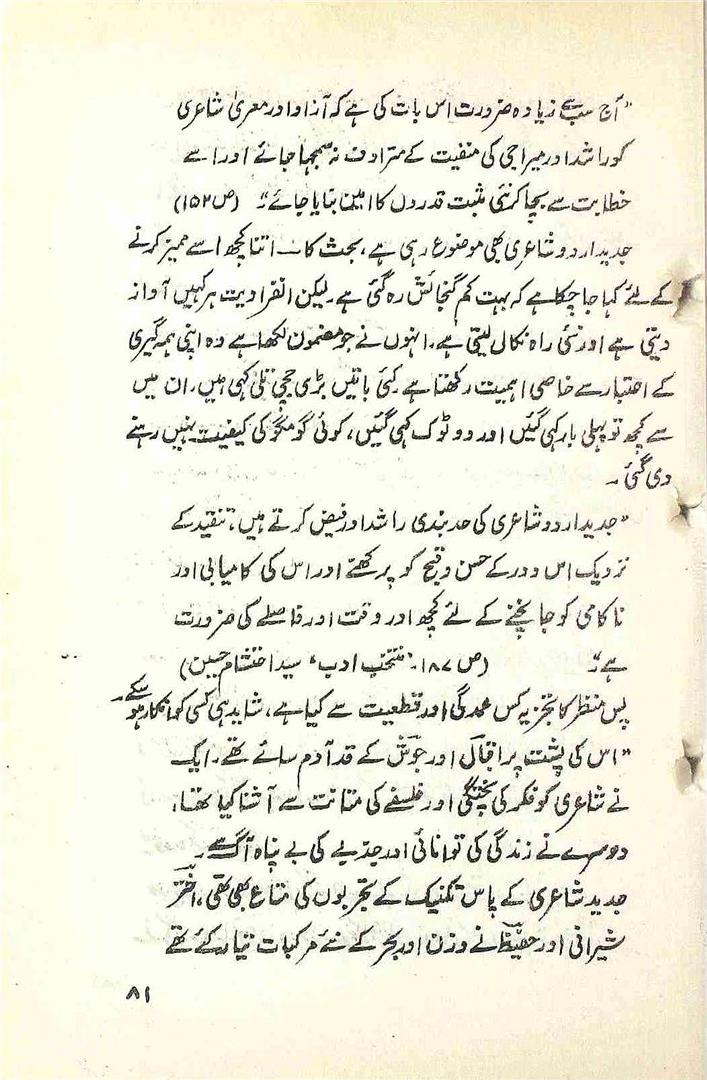 "آج سب سے زیادہ ضرورت اس بات کی ہے کہ آزاد اور معریٰ شاعری
کو راشد اور میرا جی کی منفیت کے مترادف نہ سمجھا جائے اور اسے
خطابت سے بچا کر نئی مثبت قدروں کا امین بنایا جائے۔" (ص ۱۵۲)
جدید اردو شاعری بھی موضوع رہی ہے، بحث کا ــ اتنا کچھ اسے ممیز کرنے
کے لئے کہا جا چکا ہے کہ بہت کم گنجائش رہ گئی ہے۔ لیکن انفرادیت ہر کہیں آواز
دیتی ہے اور نئی راہ نکال لیتی ہے۔ انہوں نے جو مضمون لکھا ہے وہ اپنی ہمہ گیری
کے اعتبار سے خاصی اہمیت رکھتا ہے۔ کئی باتیں بڑی جچی تلی کہی ہیں۔ ان میں
سے کچھ تو پہلی بار کہی گئیں اور دو ٹوک کہی گئیں، کوئی گومگو کی کیفیت نہیں رہنے
دی گئی۔
"جدید اردو شاعری کی حد بندی راشد اور فیض کرتے ہیں، تنقید کے
نزدیک اس دور کے حسن و قبح کو پرکھنے اور اس کی کامیابی اور
ناکامی کو جانچنے کے لئے کچھ اور وقت اور فاصلے کی ضرورت
ہے۔" (ص ۱۸۷۔ "منتخب ادب" سید احتشام حسین)
پس منظر کا تجزیہ کس عمدگی اور قطعیت سے کیا ہے، شاید ہی کسی کو انکار ہو سکے۔
"اس کی پشت پر اقبال اور جوش کے قد آدم سائے تھے۔ ایک
نے شاعری کو فکر کی پختگی اور فلسفے کی متانت سے آشنا کیا تھا،
دوسرے نے زندگی کی توانائی اور جذبے کی بے پناہ آگ سے۔
جدید شاعری کے پاس تکنیک کے تجربوں کی متاع بھی تھی، اختر
شیرانی اور حفیظ نے وزن اور بحر کے نئے مرکبات تیار کئے تھے
۸۱